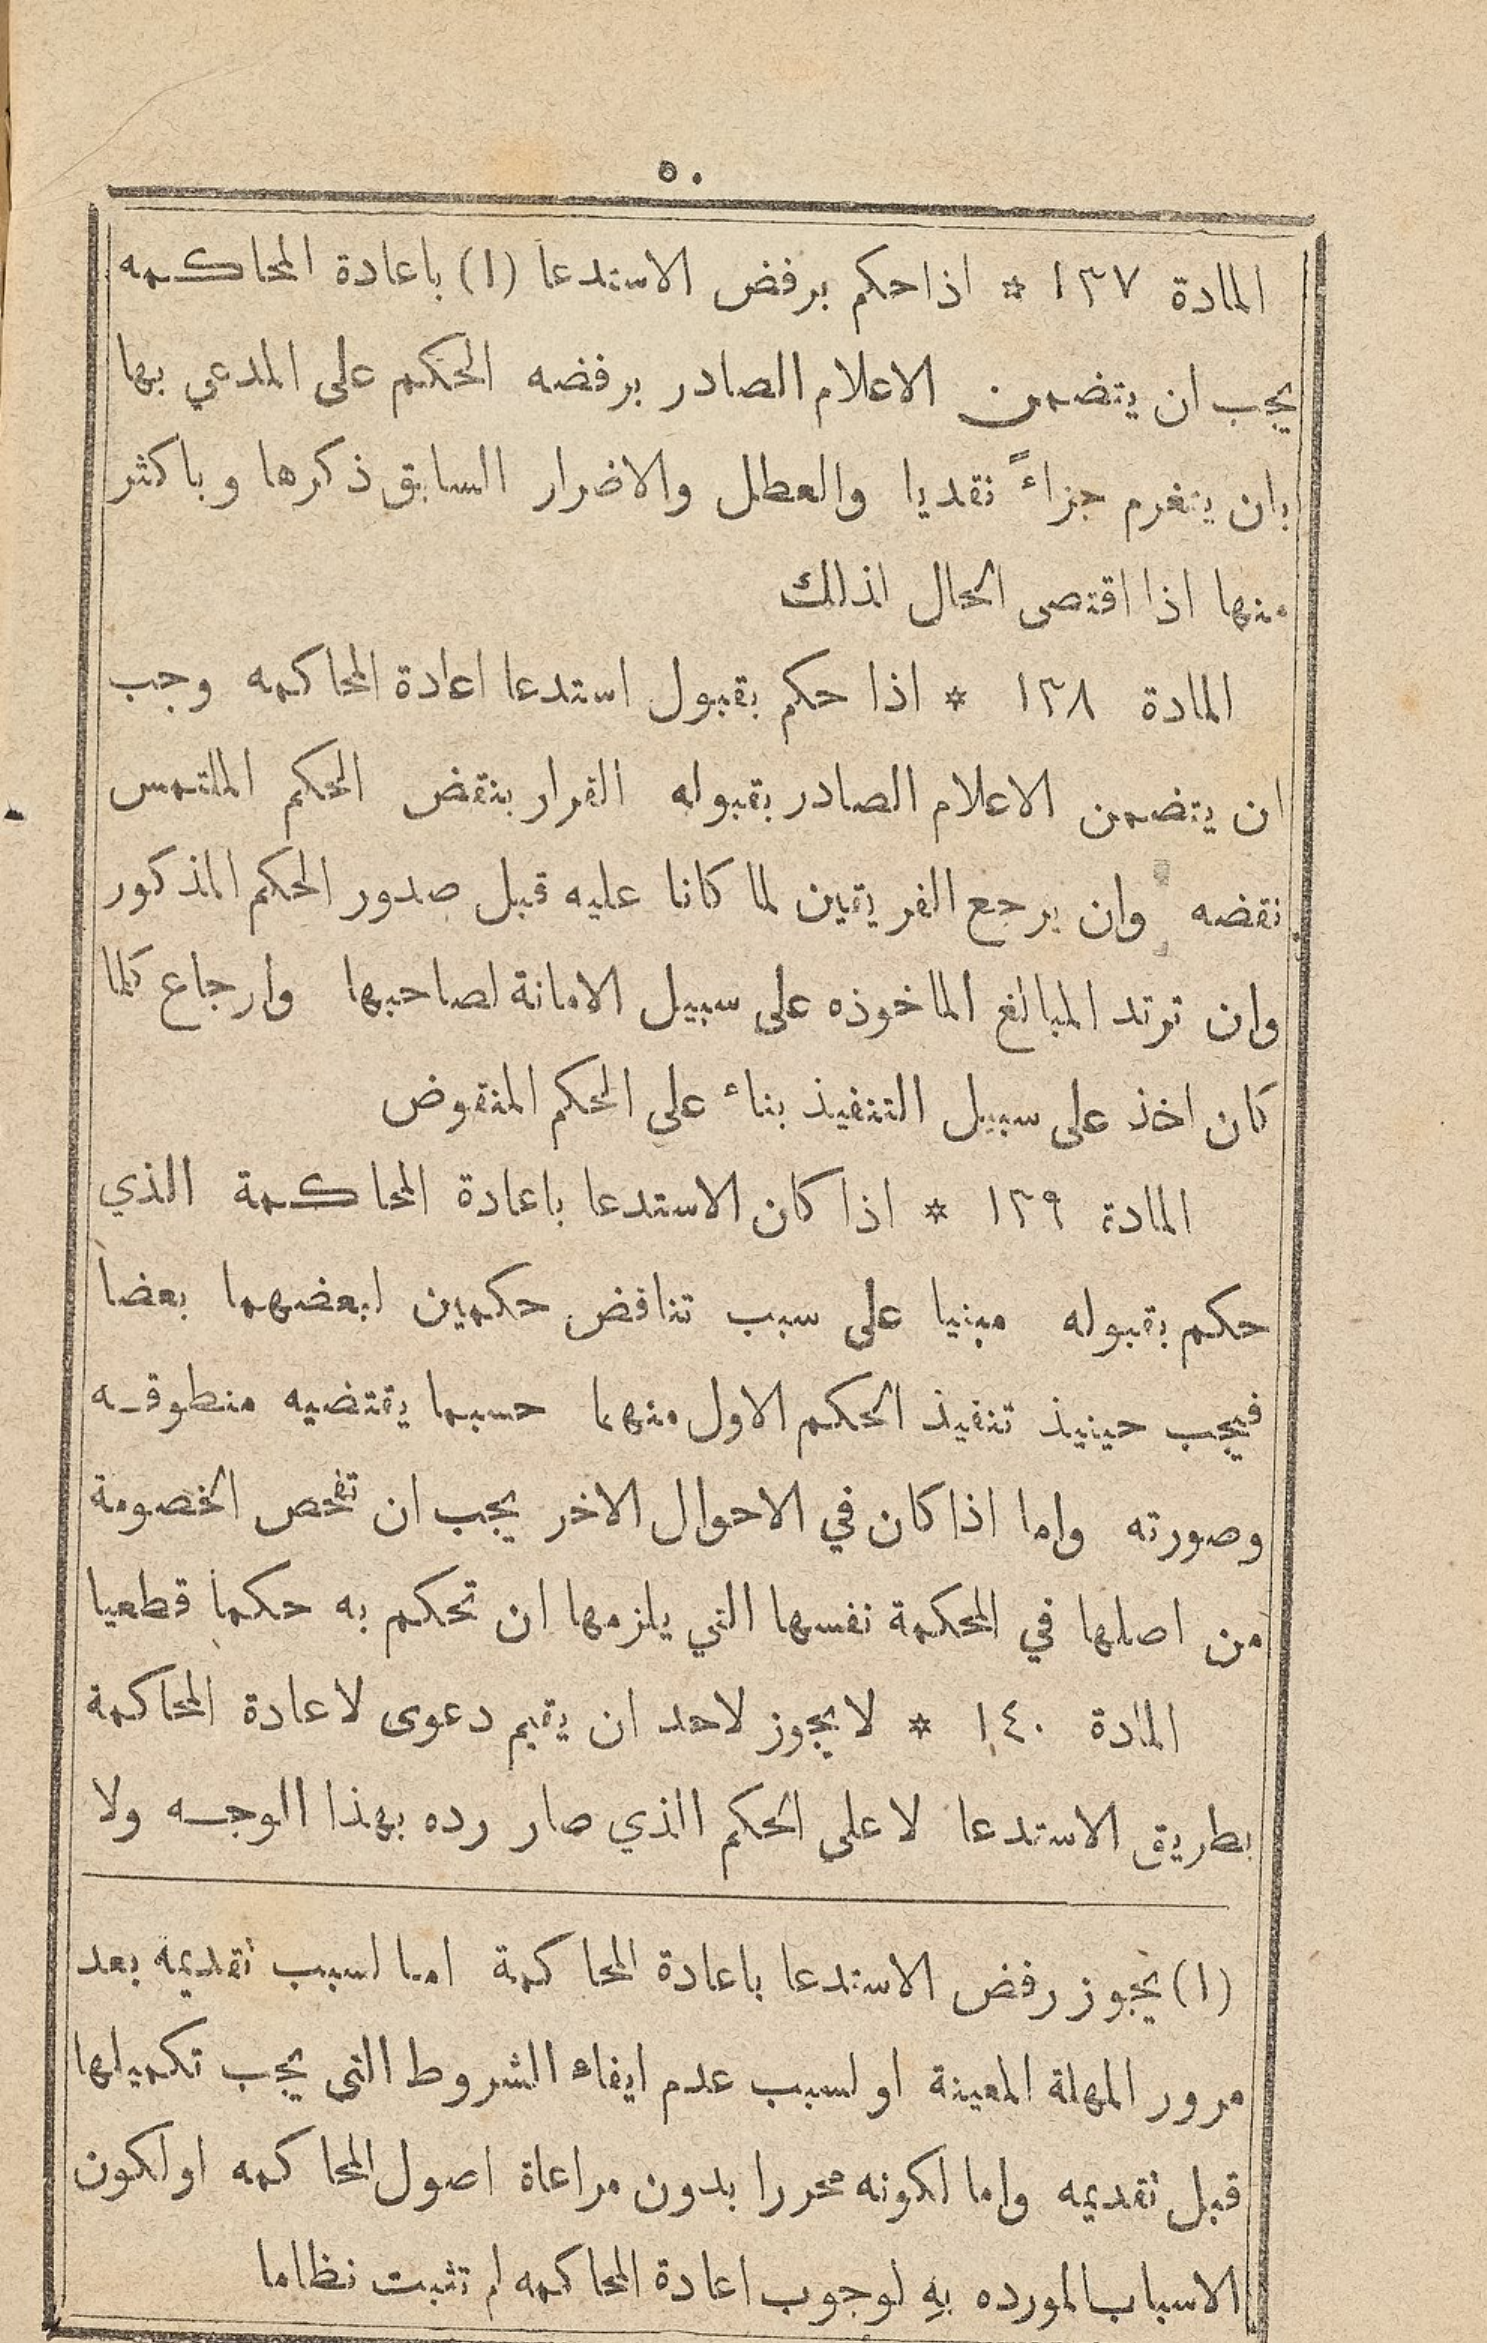 ٥٠
المادة ١٣٧ * اذا حكم برفض الاستدعا (١) باعادة المحاكمه
يجب ان يتضمن الاعلام الصادر برفضه الحكم على المدعي بها
بان يتغرم جزاءً نقديا والعطل والاضرار السابق ذكرها وباكثر
منها اذا اقتصى الحال لذلك
المادة ١٣٨ * اذا حكم بقبول استدعا اعادة المحاكمه وجب
ان يتضمن الاعلام الصادر بقبوله القرار بنقض الحكم الملتمس
نقضه وان يرجع الفريقين لما كانا عليه قبل صدور الحكم المذكور
وان ترتد المبالغ الماخوذه على سبيل الامانة لصاحبها وارجاع كلما
كان اخذ على سبيل التنفيذ بناء على الحكم المنقوض
المادة ١٣٩ * اذا كان الاستدعا باعادة المحاكمة الذي
حكم بقبوله مبنيا على سبب تناقض حكمين لبعضهما بعضا
فيجب حينيذ تنفيذ الحكم الاول منهما حسبما يقتضيه منطوقه
وصورته واما اذا كان في الاحوال الاخر يجب ان تفحص الخصومة
من اصلها في المحكمة نفسها التي يلزمها ان تحكم به حكما قطعيا
المادة ١٤٠ * لا يجوز لاحد ان يقيم دعوى لاعادة المحاكمة
بطريق الاستدعا لا على الحكم الذي صار رده بهذا الوجه ولا
(١) يجوز رفض الاستدعا باعادة المحاكمة اما لسبب تقديمه بعد
مرور المهلة المعينة او لسبب عدم ايفاء الشروط التى يجب تكميلها
قبل تقديمه واما لكونه محررا بدون مراعاة اصول المحاكمه او لكون
الاسباب المورده بهِ لوجوب اعادة المحاكمه لم تثبت نظاما